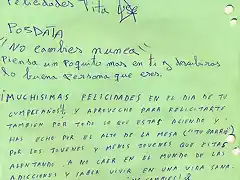 Felicidades Tita
POSDATA
"No cambies nunca"
Piensa un poquito mas en ti y descubriras
lo buena persona que eres.
¡MUCHISIMAS FELICIDADES EN EL DIA DE TU
CUMPEAÑOS! Y APROVECHO PARA FELICITARTE
TAMBIEN POR TODO LO QUE ESTAS ACIENDO Y
HAS ECHO POR EL ALTO DE LA MESA ("TU BARRIO")
POR LOS JOVENES Y MENOS JOVENES QUE ESTAS
ALENTANDO A NO CAER EN EL MUNDO DE LAS
ADICCIONES Y SABER VIVIR EN UNA VIDA SANA